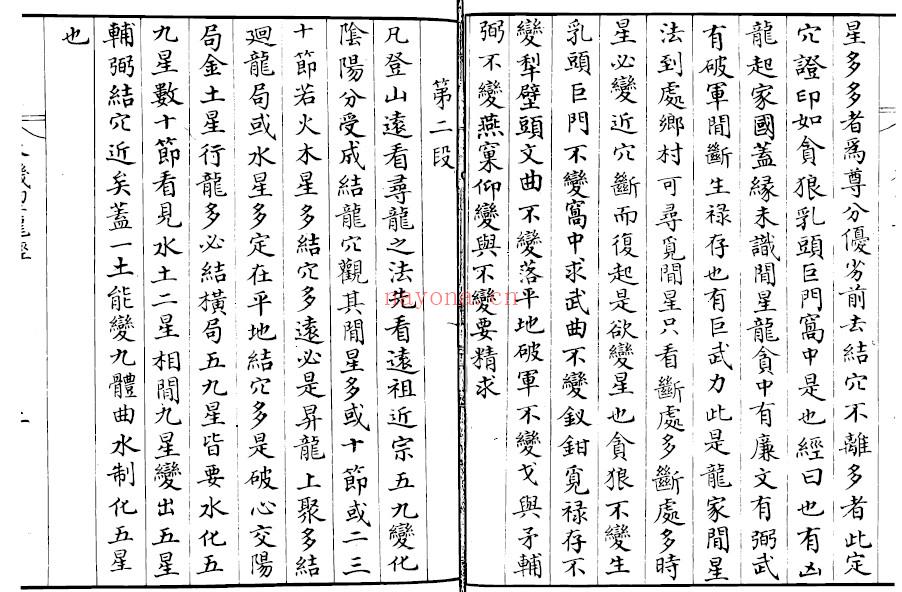 星多多者為尊分優劣前去結穴不離多者此定
穴證印如貪狼乳頭巨門窩中是也經曰也有凶
龍起家國蓋緣未識間星龍貪中有廉文有弼武
有破軍間斷生祿存也有巨武力此是龍家間星
法到處鄉村可尋覓間星只看斷處多斷處多時
星必變近穴斷而復起是欲變星也貪狼不變生
乳頭巨門不變窩中求武曲不變釵鉗覓祿存不
變犁壁頭文曲不變落平地破軍不變戈與矛輔
弼不變燕窠仰變與不變要精求
第二段
凡登山遠看尋龍之法先看遠祖近宗五九變化
陰陽分受成結龍穴觀其間星多或十節或二三
十節若火木星多結穴多遠必是昇龍上聚多結
廻龍局或水星多定在平地結穴多是破心交陽
局金土星行龍多必結橫局五九星皆要水化五
九星數十節看見水土二星相間九星變出五星
輔弼結穴近矣蓋一土能變九體曲水制化五星
也
nayona.cn